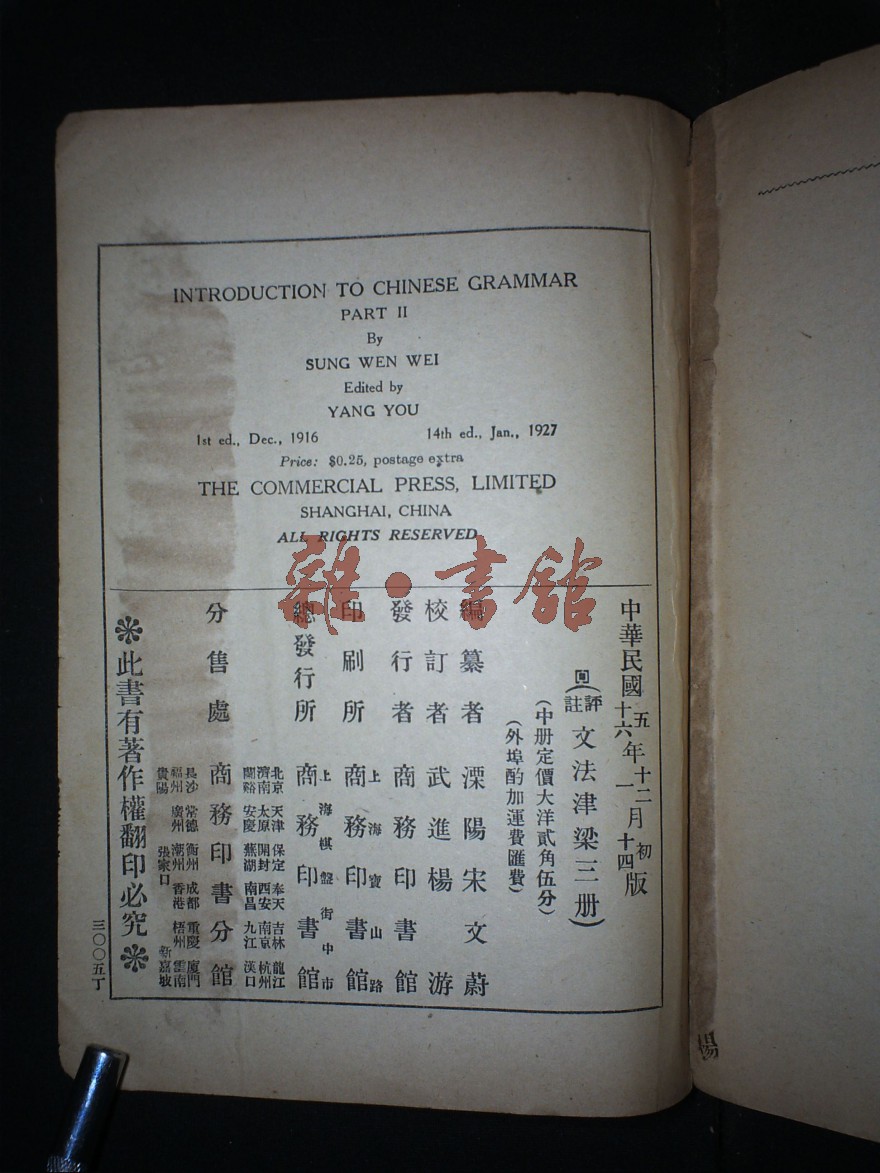 INTRODUCTION TO CHINESE GRAMMAR
PART II
By
SUNG WEN WEI
Edited by
YANG YOU
1st ed., Dec., 1916 14th ed., Jan., 1927
Price: $0.25, postage extra
THE COMMERCIAL PRESS, LIMITED
SHANGHAI, CHINA
ALL RIGHTS RESERVED
雜·書館
中華民國五年十二月初版
十六 一 十四
(評註文法津梁三册)
(中册定價大洋貳角伍分)
(外埠酌加運費匯費)
編纂者 溧陽宋文蔚
校訂者 武進楊游
發行者 商務印書館
印刷所 上海寶山路 商務印書館
總發行所 上海棋盤街中市 商務印書館
分售處 商務印書分館
北京 天津 保定 奉天 吉林 龍江
濟南 太原 開封 西安 南京 杭州
蘭谿 安慶 蕪湖 南昌 九江 漢口
長沙 常德 衡州 成都 重慶 廈門
福州 廣州 潮州 香港 梧州 雲南
貴陽 張家口 新嘉坡
此書有著作權翻印必究
三〇〇五丁
楊